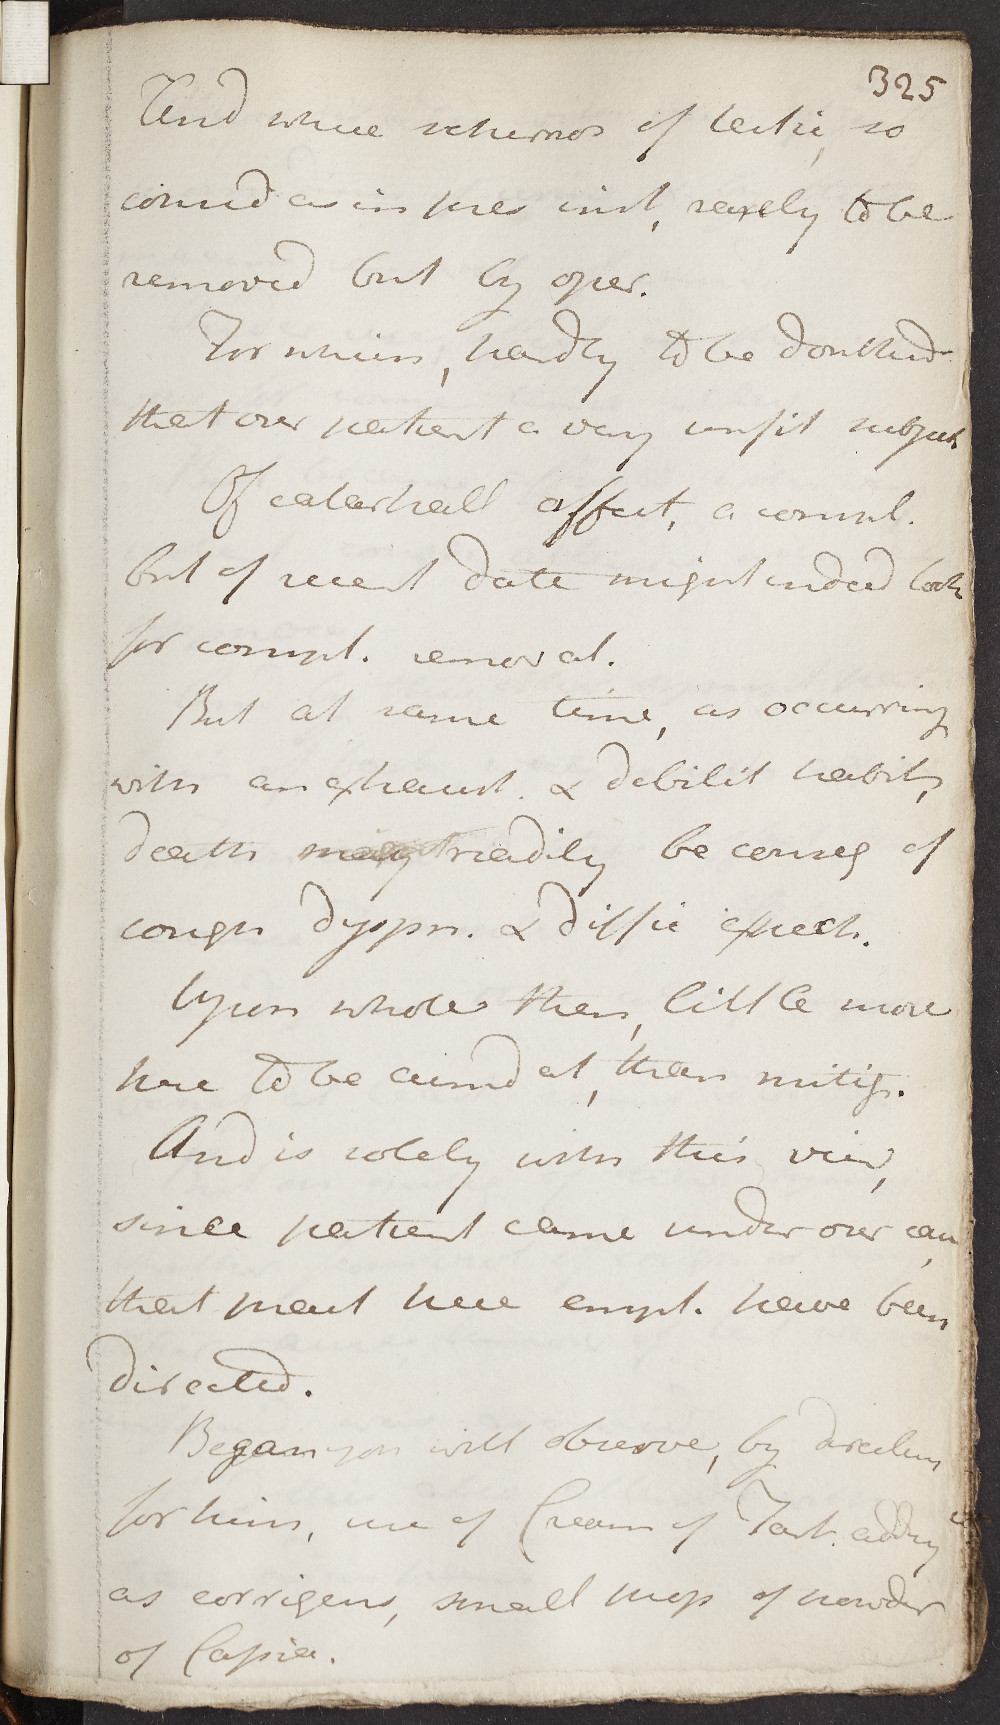 325
And where schirros of testis, so
consid as in pres inst, rarely to be
removed but by oper.
For which, hardly to be doubted
that our patient a very unfit subject
Of catarhall affect, a compl.
but of recent date might indeed look
for compl. removal.
But at same time, as occurring
with an exhaust. & debilit habit,
death readily be conseq of
cough dyspn. & diffic expect.
Upon whole then, little more
here to be aimd at, than mitig.
And is solely with this view,
since patient came under our care
that pract here empl. have been
directed.
Began you will observe, by directing
for him, use of Cream of Tart. adding
as corrigens, small prop of powder
of Cassia.